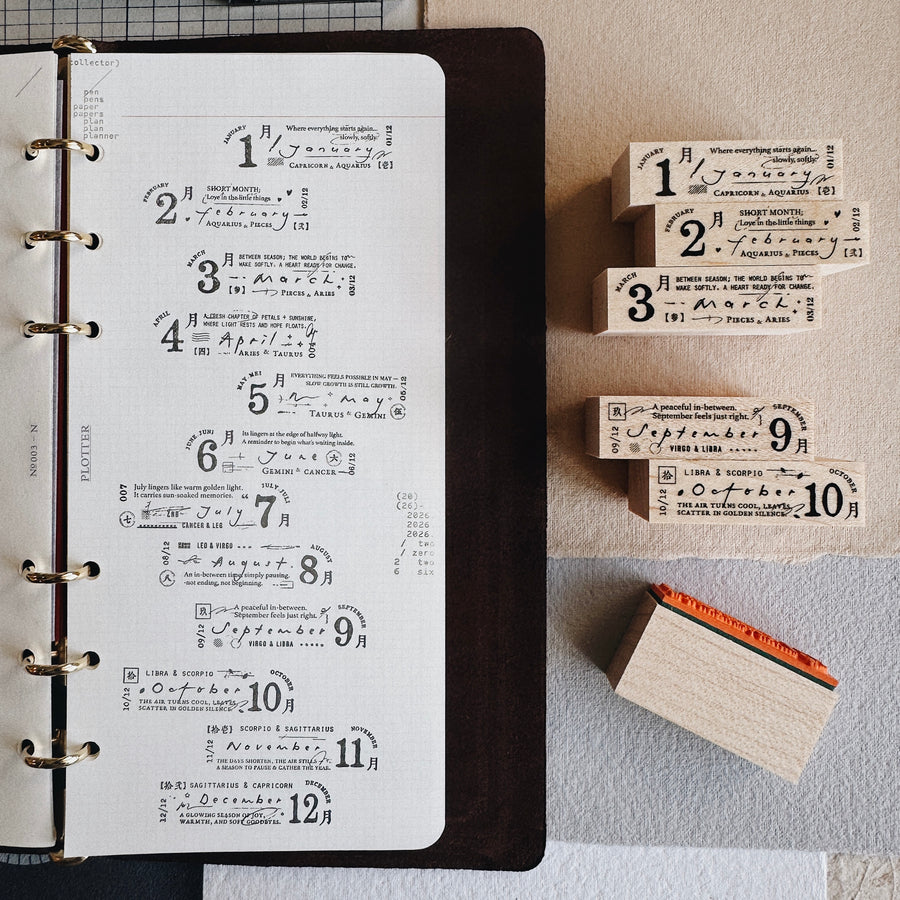 collector)
pen
pens
paper
papers
plan
plan
planner
Nº003 – N
PLOTTER
JANUARY
1月
Where everything starts again...
slowly, softly.
January
CAPRICORN & AQUARIUS 【壱】
01/12
FEBRUARY
2月
SHORT MONTH;
Love in the little things
february
AQUARIUS & PIECES 【弐】
02/12
MARCH
3月
BETWEEN SEASON; THE WORLD BEGINS TO
WAKE SOFTLY. A HEART READY FOR CHANGE.
March
【参】 PIECES & ARIES
03/12
APRIL
4月
A FRESH CHAPTER OF PETALS + SUNSHINE,
WHERE LIGHT RESTS AND HOPE FLOATS.
April
【四】 ARIES & TAURUS
004
MAY MEI
5月
EVERYTHING FEELS POSSIBLE IN MAY —
SLOW GROWTH IS STILL GROWTH.
May
TAURUS & GEMINI 伍
05/12
JUNE JUNI
6月
Its lingers at the edge of halfway light.
A reminder to begin what's waiting inside.
June 六
GEMINI & CANCER
06/12
007
July lingers like warm golden light.
It carries sun-soaked memories.
July
七 CANCER & LEO
JULY JULI
7月
08/12
LEO & VIRGO
August.
八
An in-between time simply pausing.
-not ending, not beginning.
AUGUST
8月
玖
A peaceful in-between.
September feels just right.
September
09/12
VIRGO & LIBRA
SEPTEMBER
9月
拾
LIBRA & SCORPIO
October
10/12
THE AIR TURNS COOL, LEAVES
SCATTER IN GOLDEN SILENCE.
OCTOBER
10月
【拾壱】 SCORPIO & SAGITTARIUS
November
11/12
THE DAYS SHORTEN, THE AIR STILLS
A SEASON TO PAUSE & GATHER THE YEAR.
NOVEMBER
11月
【拾弐】 SAGITTARIUS & CAPRICORN
December
12/12
A GLOWING SEASON OF JOY,
WARMTH, AND SOFT GOODBYES.
DECEMBER
12月
(20)
(26)-
2026
2026
2026
1 two
/ zero
2 two
6 six
JANUARY
1月
Where everything starts again...
slowly, softly.
January
CAPRICORN & AQUARIUS 【壱】
01/12
FEBRUARY
2月
SHORT MONTH;
Love in the little things
february
AQUARIUS & PIECES 【弐】
02/12
MARCH
3月
BETWEEN SEASON; THE WORLD BEGINS TO
WAKE SOFTLY. A HEART READY FOR CHANGE.
March
【参】 PIECES & ARIES
03/12
玖
A peaceful in-between.
September feels just right.
September
09/12
VIRGO & LIBRA
SEPTEMBER
9月
拾
LIBRA & SCORPIO
October
10/12
THE AIR TURNS COOL, LEAVES
SCATTER IN GOLDEN SILENCE.
OCTOBER
10月